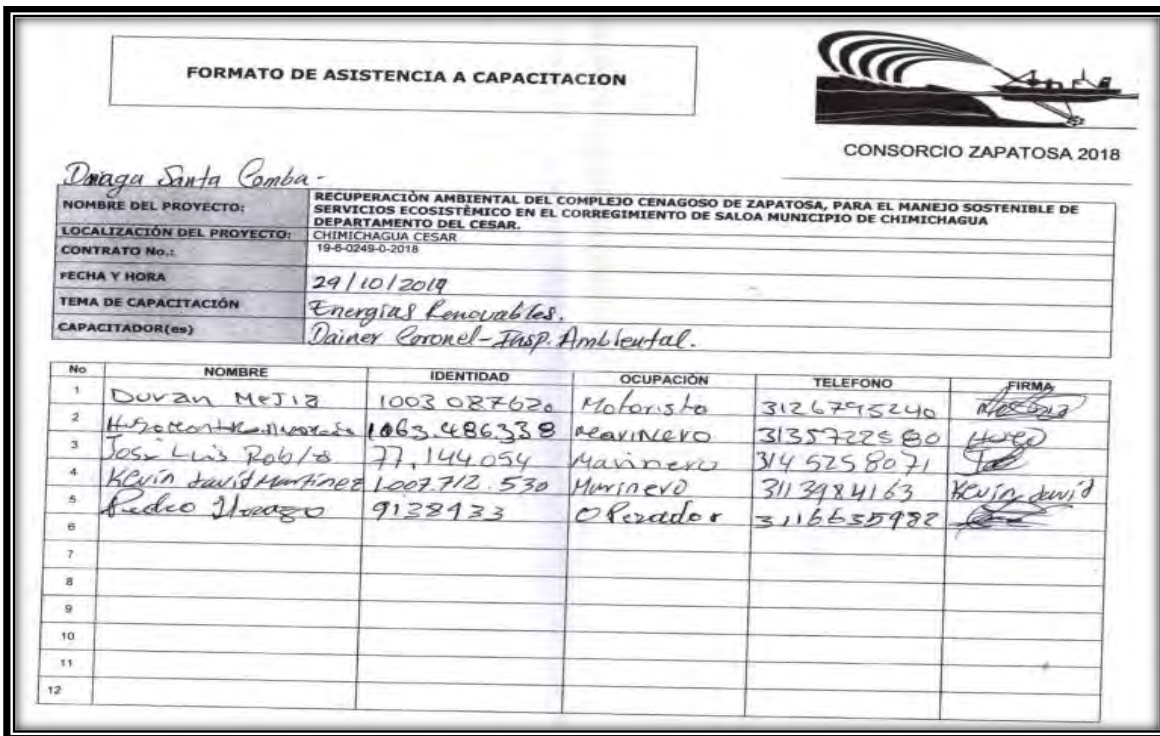 FORMATO DE ASISTENCIA A CAPACITACION
CONSORCIO ZAPATOSA 2018
Santa Comba -
NOMBRE DEL PROYECTO: RECUPERACIÒN AMBIENTAL DEL COMPLEJO CENAGOSO DE ZAPATOSA, PARA EL MANEJO SOSTENIBLE DE
SERVICIOS ECOSISTÊMICO EN EL CORREGIMIENTO DE SALOA MUNICIPIO DE CHIMICHAGUA
DEPARTAMENTO DEL CESAR.
LOCALIZACIÓN DEL PROYECTO: CHIMICHAGUA CESAR
CONTRATO No.: 19-6-0249-0-2018
FECHA Y HORA 29/10/2019
TEMA DE CAPACITACIÓN Energías Renovables.
CAPACITADOR(es) Dainer Coronel - Insp. Ambiental.
No NOMBRE IDENTIDAD OCUPACIÒN TELEFONO FIRMA
1 Duvan MeJia 1003 087620 Motorista 3126795240
2 1063.486338 Marinero 3135722580 Hugo
3 José Luis Robles 77,144.054 Marinero 314 5258071 José
4 Kevin david Martinez 1.007.712.530 Marinero 3113984163 Kevin david
5 Pedro 9138933 OPerador 3116635982
6
7
8
9
10
11
12